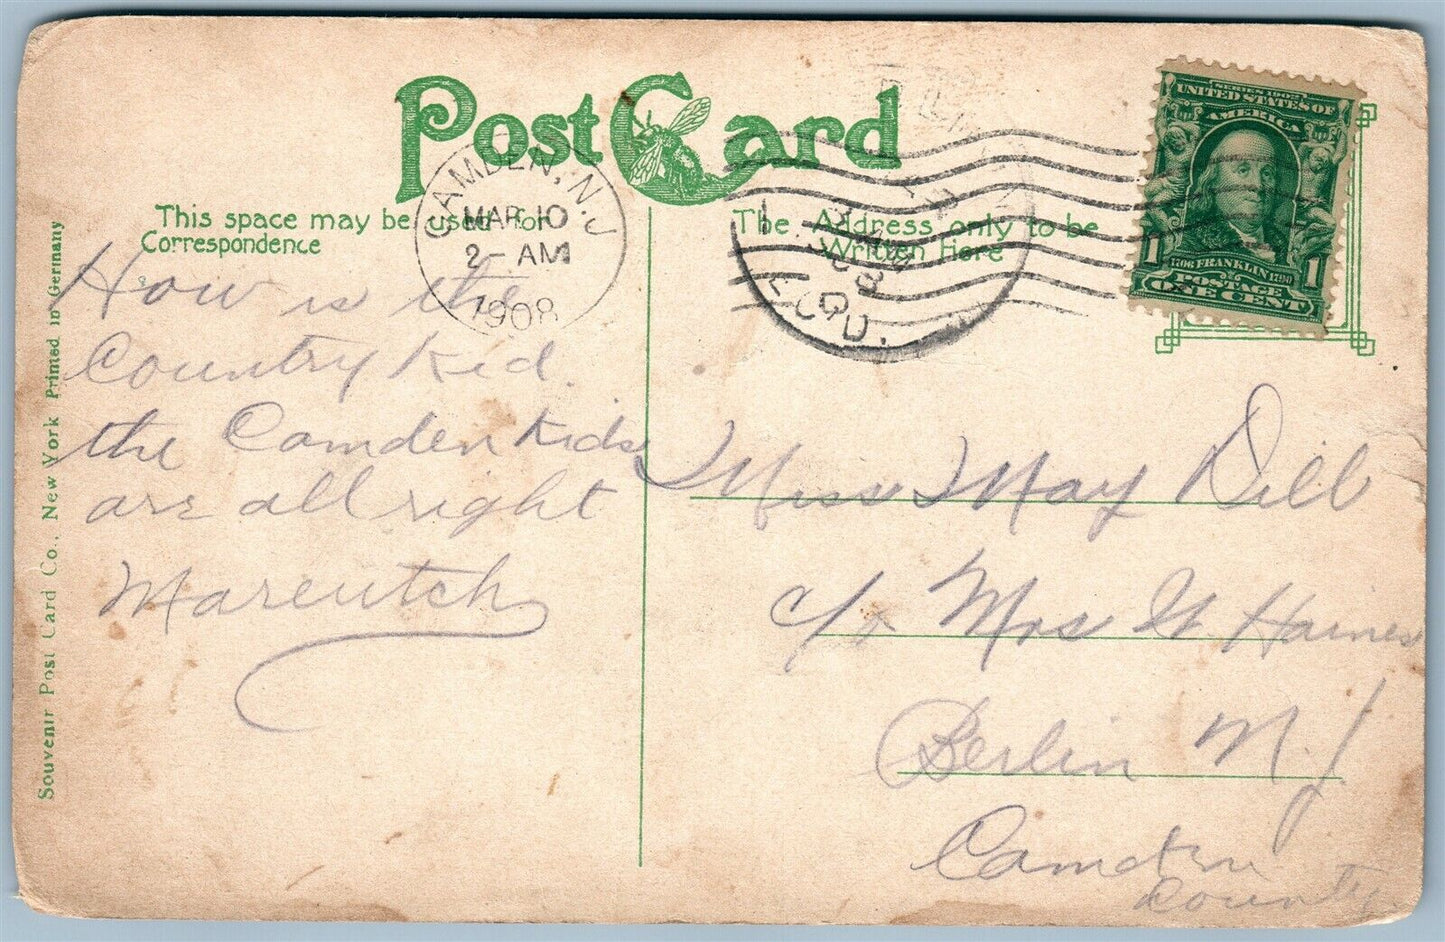 Post Card
This space may be used for
Correspondence
The Address only to be
Written Here
CAMDEN, N.J.
MAR 10
2- AM
1908
REC'D.
SERIES 1902
UNITED STATES OF
AMERICA
1 1706 FRANKLIN 1790 1
POSTAGE
ONE CENT
How is the
Country Kid.
the Camden Kids
are all right
Miss May Dill
c/o Mrs W Haines
Berlin N. J
Camden
County.
Souvenir Post Card Co., New York Printed in Germany